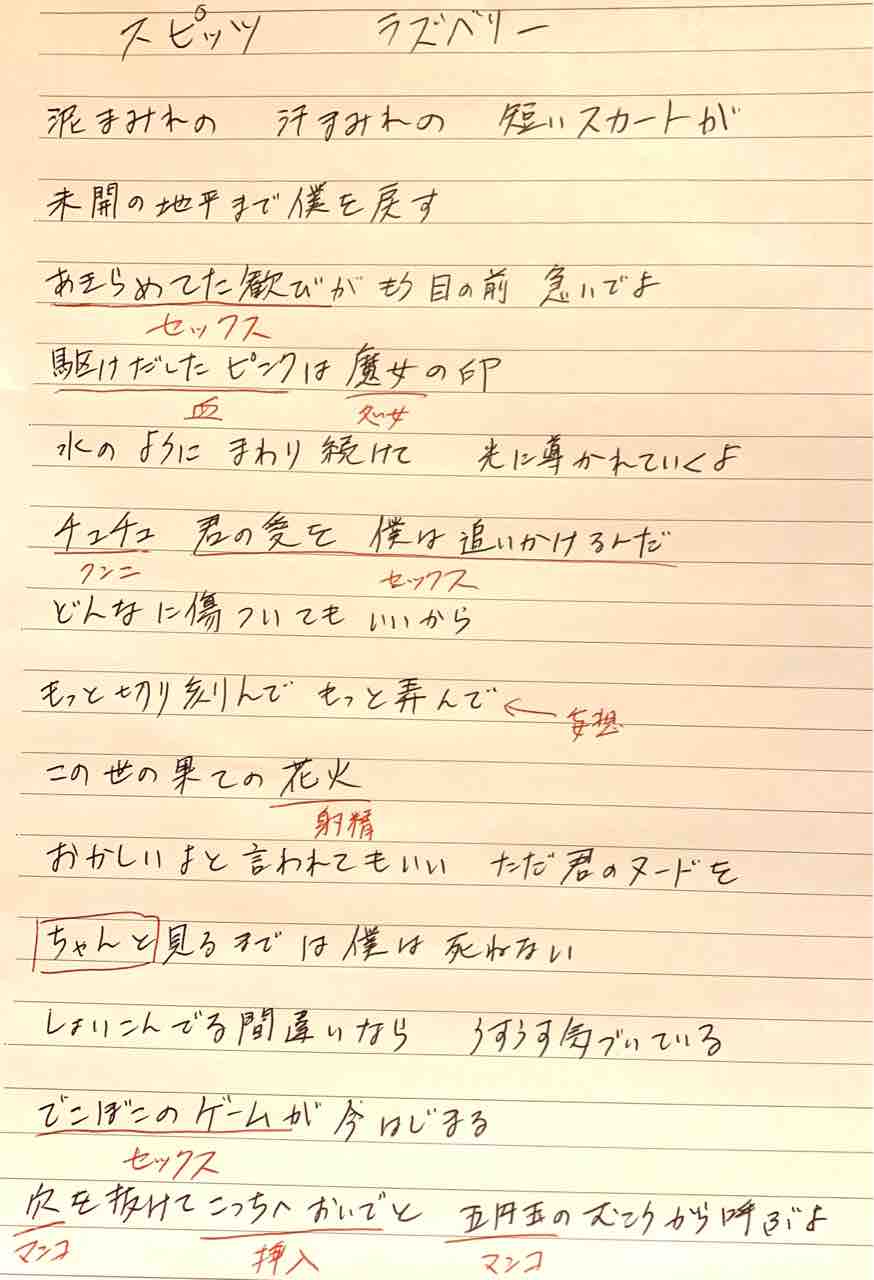 スピッツ ラズベリー
泥まみれの 汗まみれの 短いスカートが
未開の地平まで僕を戻す
あきらめてた歓びがもう目の前 急いでよ
セックス
駆けだしたピンクは魔女の印
血 処女
水のようにまわり続けて 光に導かれていくよ
チュチュ 君の愛を 僕は追いかけるんだ
クンニ セックス
どんなに傷ついてもいいから
もっと切り刻んで もっと弄んで ← 妄想
この世の果ての花火
射精
おかしいよと言われてもいい ただ君のヌードを
ちゃんと見るまでは僕は死ねない
しょいこんでる間違いなら うすうす気づいている
でこぼこのゲームが今はじまる
セックス
穴を抜けてこっちへおいでと 五円玉のむこうから呼ぶよ
マンコ 挿入 マンコ